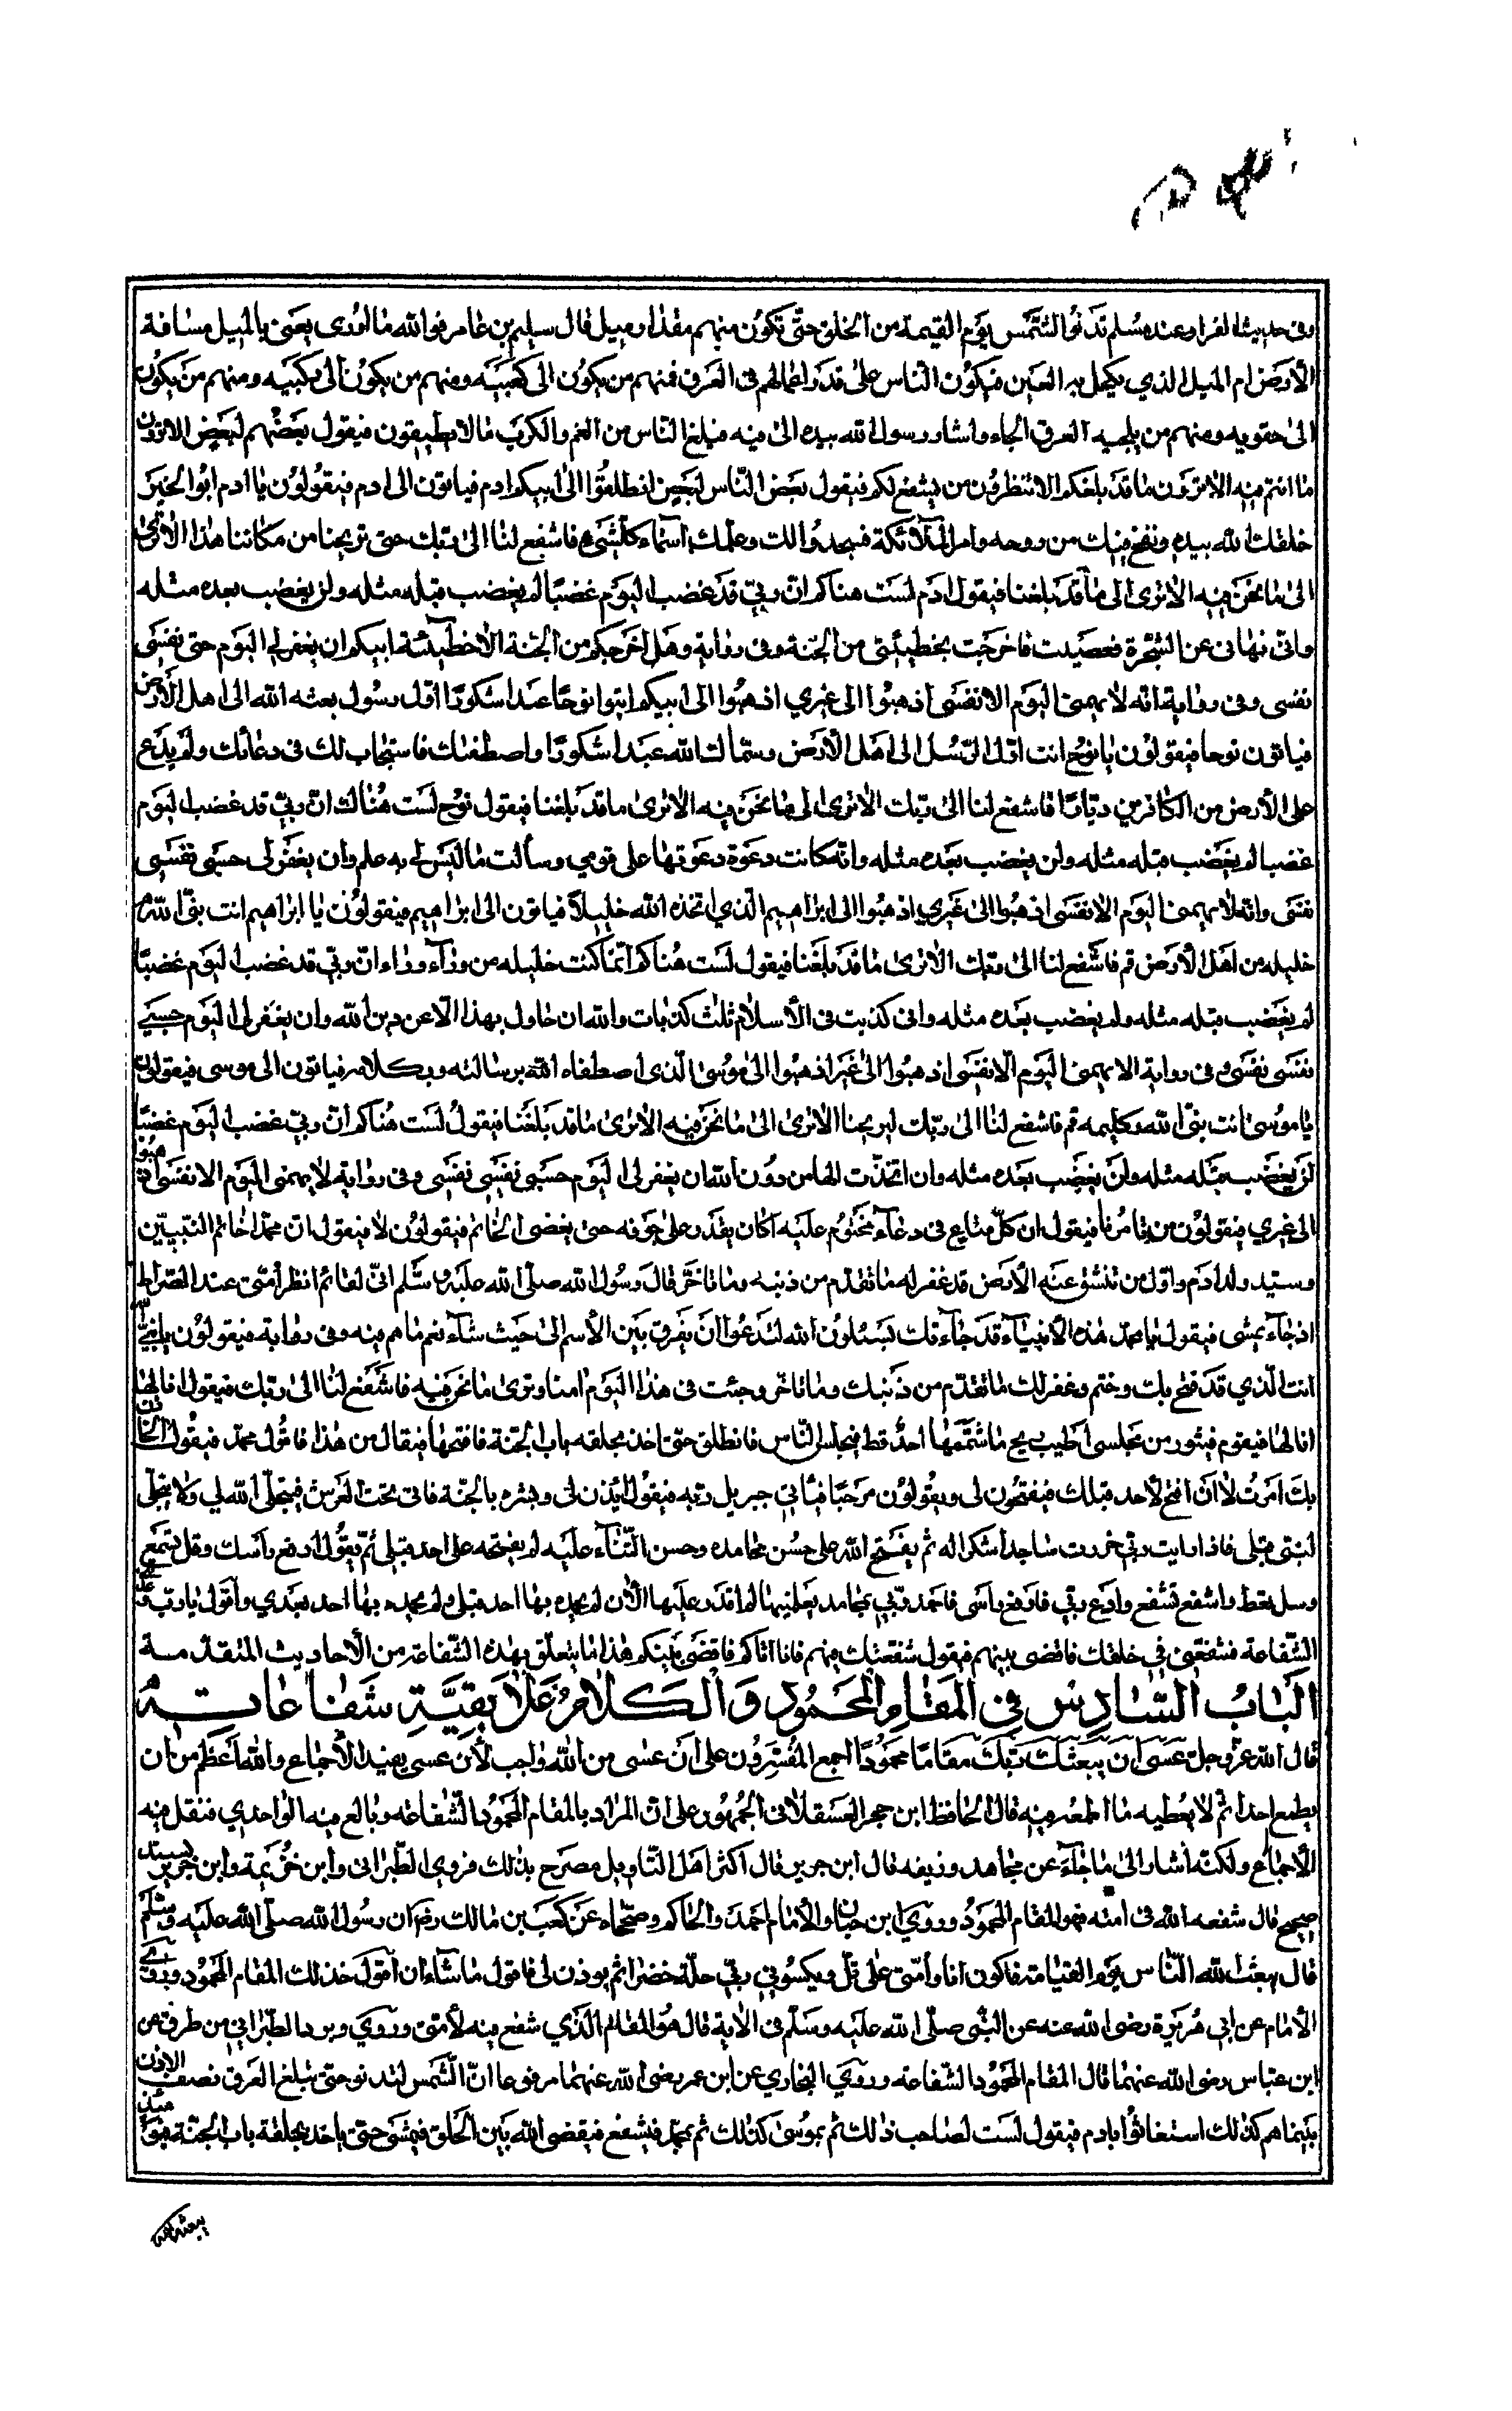 وفى حديث المقداد عند مسلم تدنوا الشمس يوم القيمة من الخلق حتى تكون منهم مقدار ميل قال سليم بن عامر فوالله ما ادرى يعنى بالميل مسافة
الأرض ام الميل الذي يكحل به العين فيكون الناس على قدر اعمالهم فى العرق فمنهم من يكون الى كعبيه ومنهم من يكون الى ركبتيه ومنهم من يكون
الى حقويه ومنهم من يلجمه العرق الجاء واشار رسول الله بيده الى فيه فيبلغ الناس من الغم والكرب ما لا يطيقون فيقول بعضهم لبعض الا ترون
ما انتم فيه الا ترون ما قد بلغكم الا تنظرون من يشفع لكم فيقول بعض الناس لبعض انطلقوا الى ابيكم ادم فياتون الى ادم فيقولون يا ادم ابوا
خلقك الله بيده ونفخ فيك من روحه وامر الملآئكة فسجدوا لك وعلمك اسماء كل شئ فاشفع لنا الى ربك حتى تريحنا من مكاننا هذا الا ترى
الى ما نحن فيه الا ترى الى ما قد بلغنا فيقول ادم لست هناكم ان ربى قد غضب اليوم غضبا لم يغضب قبله مثله ولن يغضب بعده مثله
وانى نهانى عن الشجرة فعصيت فاخرجت بخطيئتى من الجنة وفى رواية وهل اخرجكم من الجنة الا خطيئة ابيكم ان يغفر لي اليوم حتى نفسى
نفسى وفى رواية انه لا يهمنى اليوم الا نفسى اذهبوا الى غيري اذهبوا الى ابيكم ايتوا نوحا عبدا شكورا اول رسول بعثه الله الى اهل الأرض
فياتون نوحا فيقولون يا نوح انت اول الرسل الى اهل الأرض وسماك الله عبدا شكورا واصطفاك فاستجاب لك فى دعائك ولم يدع
على الأرض من الكافرين ديارا فاشفع لنا الى ربك الا ترى الى ما نحن فيه الا ترى ما قد بلغنا فيقول نوح لست هناك ان ربى قد غضب اليوم
غضبا لم يغضب قبله مثله ولن يغضب بعده مثله وانه كانت دعوة دعوتها على قومي وسألت ما ليس لى به علم وان يغفر لى حسبى نفسى
نفسى وانه لا يهمنى اليوم الا نفسى اذهبوا الى غيري اذهبوا الى ابراهيم الذي اتخذه الله خليلا فياتون الى ابراهيم فيقولون يا ابراهيم انت نبى الله و
خليله من اهل الأرض قم فاشفع لنا الى ربك الا ترى ما قد بلغنا فيقول لست هناكم انما كنت خليله من ورآء ورآء ان ربى قد غضب اليوم غضبا
لم يغضب قبله مثله ولم يغضب بعده مثله وانى كذبت فى الأسلام ثلث كذبات والله ان حاول بهذا الا عن دين الله وان يغفر لى اليوم حسبى
نفسى نفسى وفى رواية الا يهمنى اليوم الا نفسى اذهبوا الى غير اذهبوا الى موسى الذى اصطفاه الله برسالته وبكلامه فياتون الى موسى فيقولون
يا موسى انت نبى الله وكليمه قم فاشفع لنا الى ربك ليريحنا الا ترى الى ما نحن فيه الا ترى ما قد بلغنا فيقول لست هناكم ان ربى غضب اليوم غضبا
لن يغضب قبله مثله ولن يغضب بعده مثله وان اتخذت الها من دون الله ان يغفر لى اليوم حسبى نفسى نفسى وفى رواية لا يهمنى اليوم الا نفسى اذهبوا
الى غيري فيقولون من تامرنا فيقول ان كل متاع فى دعآء مختوم عليه اكان يقدر على جوفه حتى يفضى الخاتم فيقولون لا فيقول ان محمدا خاتم النبيين
وسيد ولد ادم واول من تنشق عنه الأرض قد غفر له ما تقدم من ذنبه وما تاخر قال رسول الله صلى الله عليه وسلم انى لقائم انظر امتى عند الصراط
اذ جاء عيسى فيقول يا محمد هذه الأنبيآء قد جاءتك يسئلون الله لتدعوا ان يفرق بين الأمم الى حيث شآء لغم ما هم فيه وفى رواية فيقولون يا نبى
انت الذي قد فتح بك وختم وغفر لك ما تقدم من ذنبك وما تاخر وجئت فى هذا اليوم امنا وترى ما نحن فيه فاشفع لنا الى ربك فيقول انا لها
انا لها فيقوم فيثور من مجلسى اطيب ريح ما شمها احد قط فيجلس الناس فانطلق حتى اخذ بحلقه باب الجنة فافتحها فيقال من هذا فاقول محمد فيقول الخازن
بك امرت لا ان افتح لأحد قبلك فيفتحون لى ويقولون مرحبا فيأتى جبريل ربه فيقول ائذن له وبشره بالجنة فاتى تحت العرش فيتجلى الله لي ولا يتجلى
لنبى قبلى فاذا رايت ربى خررت ساجدا شكرا له ثم يفتح الله على حسن محامده وحسن الثنآء عليه لم يفتحه على احد قبلى ثم يقول ارفع راسك وقل يسمع
وسل تعط واشفع تشفع وادع ربى فارفع راسى فاحمد ربى بمحامد يعلمنيها لم اقدر عليها الأن لم يحمده بها احد قبلى ولم يحمده بها احد بعدي واقول يا رب وعدتنى
الشفاعة فشفعنى في خلقك فاقضى بينهم فيقول شفعتك فيهم فانا اتاكم فاقضى بينكم هذا ما يتعلق بهذه الشفاعة من الأحاديث المتقدمة
الباب السادس فى المقام المحمود والكلام على بقية شفاعاته
قال الله عز وجل عسى ان يبعثك ربك مقاما محمودا اجمع المفسرون على ان عسى من الله واجب لأن عسى يفيد الأطماع والله اعظم من ان
يطمع احدا ثم لا يعطيه ما اطمعه فيه قال الحافظ ابن حجر العسقلانى الجمهور على ان المراد بالمقام المحمود الشفاعة وبالغ فيه الواحدي فنقل فيه
الأجماع ولكنه اشار الى ما جآء عن مجاهد وزيفه قال ابن جرير قال اكثر اهل التاويل مصرح بذلك فروى الطبرانى وابن خزيمة وابن جرير بسند
صحيح قال شفعه الله فى امته فهو المقام المحمود وروي ابن حبان والأمام احمد والحاكم وصححاه عن كعب بن مالك رض ان رسول الله صلى الله عليه وسلم
قال يبعث الله الناس يوم القيامة فاكون انا وامتى على تل ويكسوني ربى حلة خضرا ثم يوذن لى فاقول ما شاء ان اقول فذلك المقام المحمود وروي
الأمام عن ابى هريرة رضى الله عنه عن النبى صلى الله عليه وسلم فى الاية قال هو المقام الذي شفع فيه لأمتى وروي الطبراني من طرق عن
ابن عباس رضى الله عنهما قال المقام المحمود الشفاعة وروي البخاري عن ابن عمر رضى الله عنهما مرفوعا ان الشمس لتدنو حتى يبلغ العرق نصف الاذن
بينما هم كذلك استغاثوا بادم فيقول لست لصاحب ذلك ثم بموسى كذلك ثم بمحمد فيشفع فيقضى الله بين الخلق فيمشى حتى ياخذ بحلقة باب الجنة فيومئذ
يبعثه الله